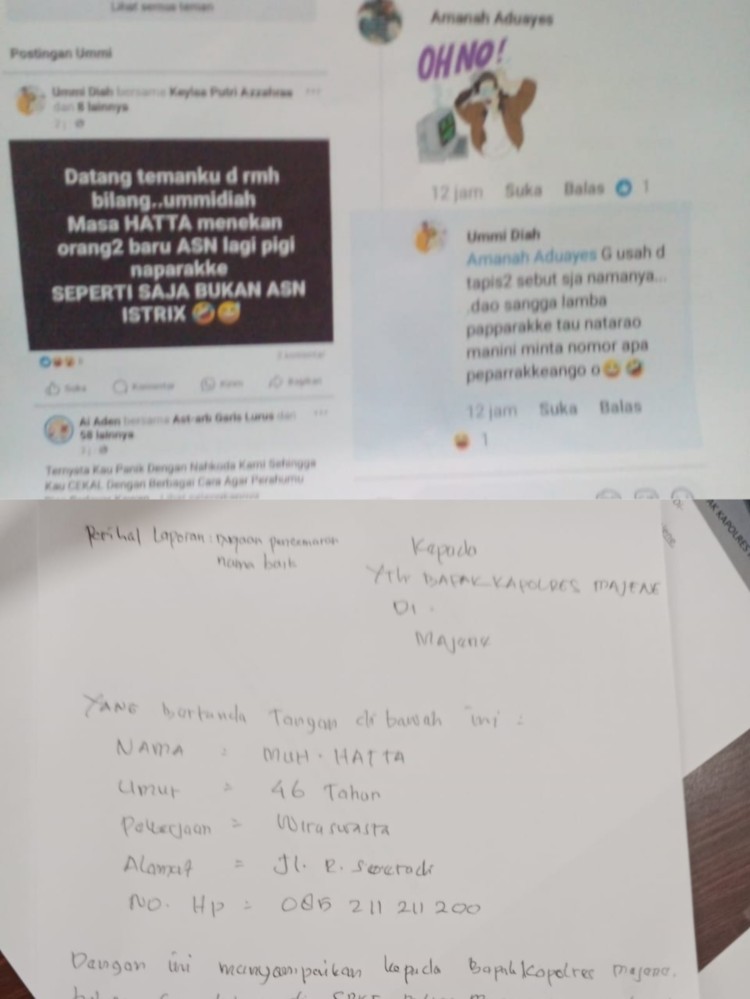 Lihat semua teman
Postingan Ummi
Ummi Diah bersama Keylaa Putri Azzahraa
dan 8 lainnya
Datang temanku d rmh
bilang..ummidiah
Masa HATTA menekan
orang2 baru ASN lagi pigi
naparakke
SEPERTI SAJA BUKAN ASN
ISTRIX 🤣😅
Suka Komentar Kirim Bagikan
Al Aden bersama Ast-arb Garis Lurus dan
58 lainnya
Ternyata Kau Panik Dengan Nahkoda Kami Sehingga
Kau CEKAL Dengan Berbagai Cara Agar Perahumu
Amanah Aduayes
OH NO!
12 jam Suka Balas 1
Ummi Diah
Amanah Aduayes G usah d
tapis2 sebut sja namanya...
.dao sangga lamba
papparakke tau natarao
manini minta nomor apa
peparrakkeango o😄🤣
12 jam Suka Balas
1
AK KAPOLRES
Perihal Laporan : Dugaan pencemaran
nama baik
Kepada
Yth BAPAK KAPOLRES MAJENE
Di.
Majene
YANG bertanda Tangan di bawah ini :
NAMA : MUH. HATTA
Umur = 46 Tahun
Pekerjaan = Wiraswasta
Alamat = Jl. R.
NO. Hp = 085 211 211 200
Dengan ini menyampaikan kepada Bapak Kapolres Majene.